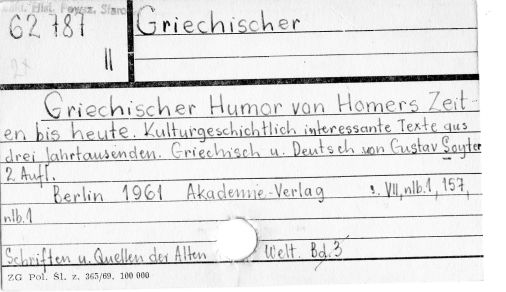 Hist. Powsz. Staroż.
62787
II
Griechischer
Griechischer Humor von Homers Zeit-
en bis heute. Kulturgeschichtlich interessante Texte aus
drei Jahrtausenden. Griechisch u. Deutsch von Gustav Soyter
2 Aufl.
Berlin 1961 Akademie-Verlag s. VII, nlb.1, 157,
nlb.1
Schriften u. Quellen der Alten Welt. Bd. 3
ZG Pol. Śl. z. 365/69. 100 000